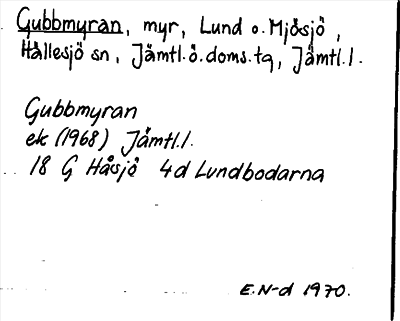 Gubbmyran, myr, Lund o. Mjösjö,
Hällesjö sn, Jämtl.ö.doms.tg, Jämtl.l.
Gubbmyran
ek (1968) Jämtl.l.
18 G Håsjö 4d Lundbodarna
E.N-d 1970.